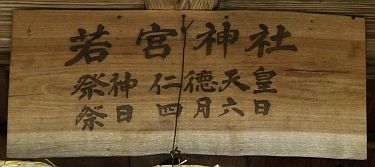 若宮神社
祭神 仁徳天皇
祭日 四月六日